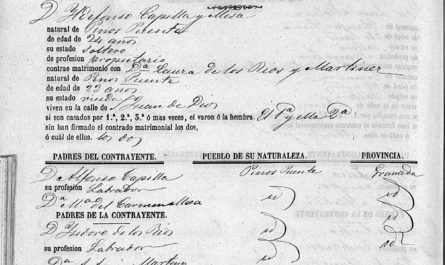 D Ildefonso Capilla y Mesa
natural de Pinos Puente
de edad de 24 años
su estado soltero
de profesion propietario
contrae matrimonio con Dª Laura de los Rios y Martinez
natural de Pinos Puente
de edad de 23 años
su estado viuda
viven en la calle de S Juan de Dios
si son casados por 1.º, 2.º, 3.º ó mas veces, el varon ó la hembra. El 1ª y ella 2ª
sin han firmado el contrado matrimonial los dos,
ó cuál de ellos. los dos
PADRES DEL CONTRAYENTE. PUEBLO DE SU NATURALEZA. PROVINCIA.
D Alfonso Capilla Pinos Puente Granada
su profesion Labrador
Dª Mª del Carmen Mesa id id
PADRES DE LA CONTRAYENTE.
D Isidoro de los Rios id id
su profesion Labrador
Dª Martinez id id